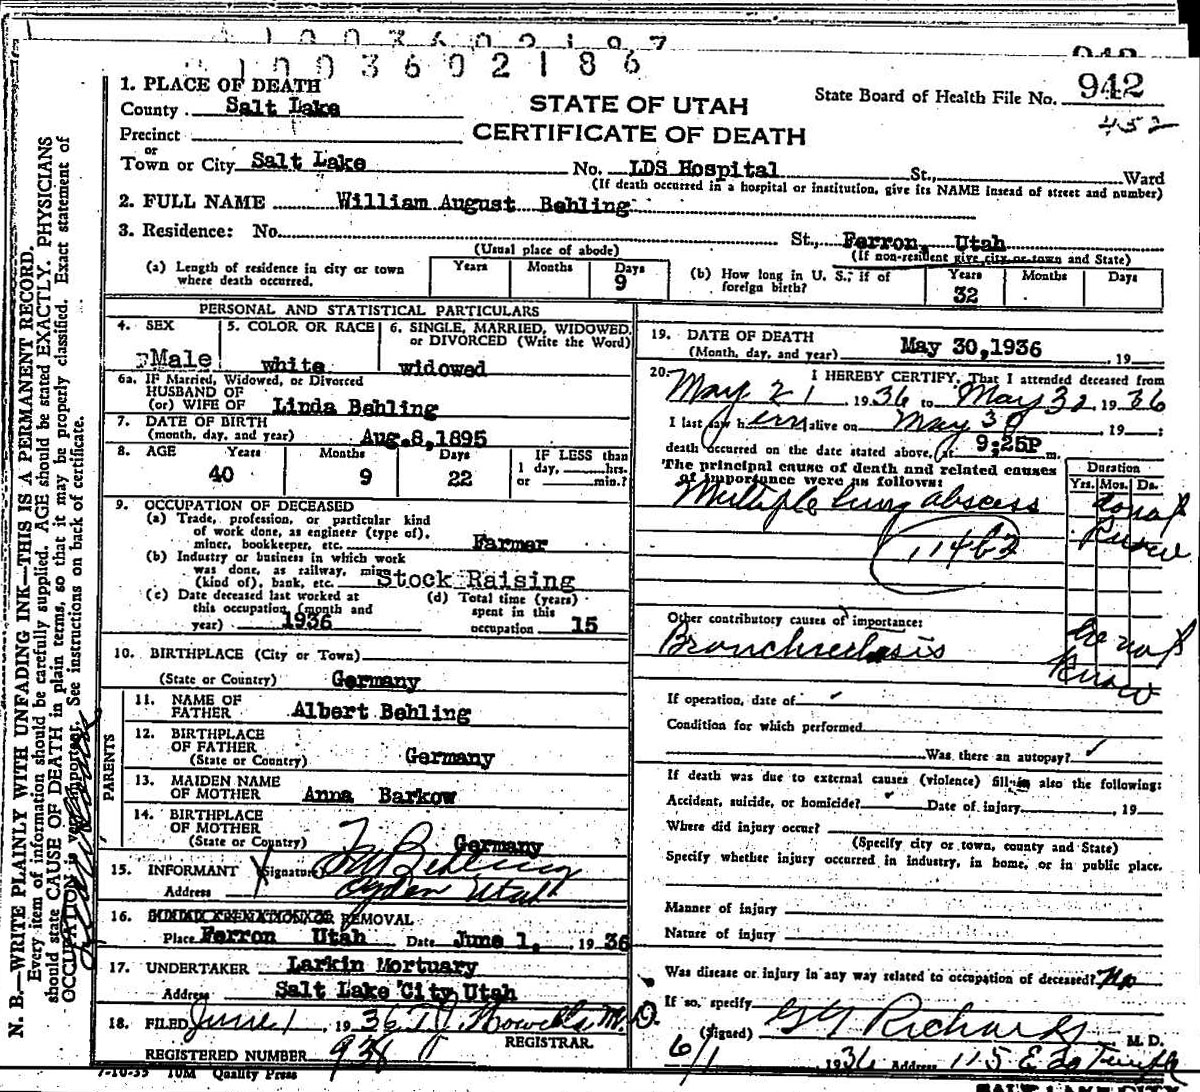 1003602186
942
1. PLACE OF DEATH
County Salt Lake
STATE OF UTAH
CERTIFICATE OF DEATH
State Board of Health File No. 942
452
Precinct
or
Town or City Salt Lake No. LDS Hospital St., Ward
(If death occurred in a hospital or institution, give its NAME insead of street and number)
2. FULL NAME William August Behling
3. Residence: No. St., Ferron, Utah
(Usual place of abode) (If non-resident give city or town and State)
(a) Length of residence in city or town where death occurred. Years Months Days 9
(b) How long in U. S., if of foreign birth? Years 32 Months Days
PERSONAL AND STATISTICAL PARTICULARS
4. SEX Male
5. COLOR OR RACE white
6. SINGLE, MARRIED, WIDOWED, or DIVORCED (Write the Word) widowed
6a. IF Married, Widowed, or Divorced
HUSBAND OF
(or) WIFE OF Linda Behling
7. DATE OF BIRTH
(month, day, and year) Aug.8,1895
8. AGE Years 40 Months 9 Days 22 IF LESS than 1 day, hrs. or min.?
9. OCCUPATION OF DECEASED
(a) Trade, profession, or particular kind
of work done, as engineer (type of),
miner, bookkeeper, etc. Farmer
(b) Industry or business in which work
was done, as railway, mine
(kind of), bank, etc. Stock Raising
(c) Date deceased last worked at
this occupation (month and
year) 1936
(d) Total time (years)
spent in this
occupation 15
10. BIRTHPLACE (City or Town)
(State or Country) Germany
PARENTS
11. NAME OF
FATHER Albert Behling
12. BIRTHPLACE
OF FATHER
(State or Country) Germany
13. MAIDEN NAME
OF MOTHER Anna Barkow
14. BIRTHPLACE
OF MOTHER
(State or Country) Germany
15. INFORMANT (Signature) Behling
Address Ogden Utah
16. REMOVAL
Place Ferron Utah Date June 1, 1936
17. UNDERTAKER Larkin Mortuary
Address Salt Lake City Utah
18. FILED June 1, 1936 T J Howells M.D.
REGISTRAR.
REGISTERED NUMBER 938
7-10-35 10M Quality Press
19. DATE OF DEATH
(Month, day, and year) May 30,1936, 19
20. I HEREBY CERTIFY, That I attended deceased from
May 21 1936 to May 30 1936
I last saw him alive on May 30, 19 ;
death occurred on the date stated above, at 9;25P m.
The principal cause of death and related causes
of importance were as follows:
Duration
Yrs. Mos. Ds.
Multiple lung abscess do not know
114b2
Other contributory causes of importance:
Bronchiectasis do not know
If operation, date of
Condition for which performed
Was there an autopsy?
If death was due to external causes (violence) fill in also the following:
Accident, suicide, or homicide? Date of injury, 19
Where did injury occur?
(Specify city or town, county and State)
Specify whether injury occurred in industry, in home, or in public place.
Manner of injury
Nature of injury
Was disease or injury in any way related to occupation of deceased? No
If so, specify
(Signed) G G Richards M. D.
6/1 1936 Address 115 E So Temple
SALT LAKE CITY
N. B.—WRITE PLAINLY WITH UNFADING INK—THIS IS A PERMANENT RECORD.
Every item of information should be carefully supplied. AGE should be stated EXACTLY. PHYSICIANS
should state CAUSE OF DEATH in plain terms, so that it may be properly classified. Exact statement of
OCCUPATION is very important. See instructions on back of certificate.